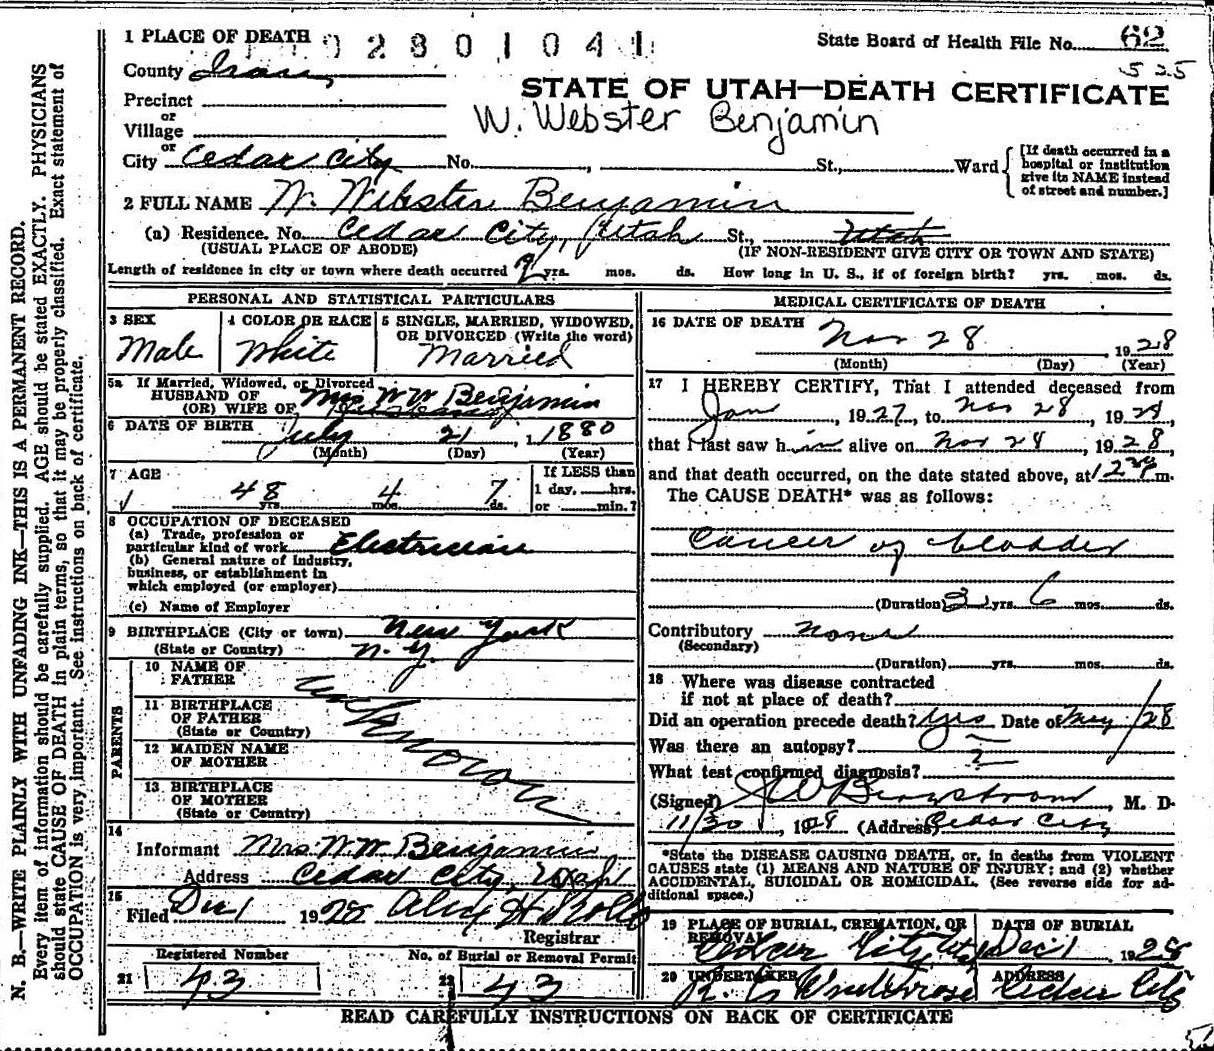 1 PLACE OF DEATH
0 2 8 0 1 0 4 1
State Board of Health File No. 62
525
County Iron
STATE OF UTAH—DEATH CERTIFICATE
Precinct
or
Village
W. Webster Benjamin
or
City Cedar City No. , St., Ward
[If death occurred in a hospital or institution give its NAME instead of street and number.]
2 FULL NAME W. Webster Benjamin
(a) Residence. No. Cedar City, Utah St., Utah
(USUAL PLACE OF ABODE) (IF NON-RESIDENT GIVE CITY OR TOWN AND STATE)
Length of residence in city or town where death occurred 9 yrs. mos. ds. How long in U. S., if of foreign birth? yrs. mos. ds.
PERSONAL AND STATISTICAL PARTICULARS
3 SEX
Male
4 COLOR OR RACE
White
5 SINGLE, MARRIED, WIDOWED,
OR DIVORCED (Write the word)
Married
5a If Married, Widowed, or Divorced
HUSBAND OF
(OR) WIFE OF Mrs W W Benjamin
6 DATE OF BIRTH July 21, 1880
(Month) (Day) (Year)
7 AGE
48 yrs. 4 mos. 7 ds.
If LESS than
1 day, hrs.
or min.?
8 OCCUPATION OF DECEASED
(a) Trade, profession or
particular kind of work Electrician
(b) General nature of industry,
business, or establishment in
which employed (or employer)
(c) Name of Employer
9 BIRTHPLACE (City or town) New York
(State or Country) N.Y.
PARENTS
10 NAME OF
FATHER
11 BIRTHPLACE
OF FATHER
(State or Country)
12 MAIDEN NAME
OF MOTHER
13 BIRTHPLACE
OF MOTHER
(State or Country)
unknown
14
Informant Mrs. W.W. Benjamin
Address Cedar City, Utah
15
Filed Dec 1 1928
Registrar
Registered Number
21 43
No. of Burial or Removal Permit
22 43
MEDICAL CERTIFICATE OF DEATH
16 DATE OF DEATH Nov 28, 1928
(Month) (Day) (Year)
17 I HEREBY CERTIFY, That I attended deceased from
Jan, 1927, to Nov 28, 1928,
that I last saw him alive on Nov 28, 1928,
and that death occurred, on the date stated above, at m.
The CAUSE DEATH* was as follows:
Cancer of bladder
(Duration) yrs. 6 mos. ds.
Contributory None
(Secondary)
(Duration) yrs. mos. ds.
18 Where was disease contracted
if not at place of death?
Did an operation precede death? Yes Date of May /28
Was there an autopsy?
What test confirmed diagnosis? ?
(Signed) Bergstrom, M. D.
11/30, 1928 (Address) Cedar City
*State the DISEASE CAUSING DEATH, or, in deaths from VIOLENT
CAUSES state (1) MEANS AND NATURE OF INJURY; and (2) whether
ACCIDENTAL, SUICIDAL OR HOMICIDAL. (See reverse side for ad-
ditional space.)
19 PLACE OF BURIAL, CREMATION, OR
REMOVAL
Cedar City Utah
DATE OF BURIAL
Dec 1 1928
20 UNDERTAKER
ADDRESS
Cedar City
READ CAREFULLY INSTRUCTIONS ON BACK OF CERTIFICATE
N. B.—WRITE PLAINLY WITH UNFADING INK—THIS IS A PERMANENT RECORD.
Every item of information should be carefully supplied. AGE should be stated EXACTLY. PHYSICIANS
should state CAUSE OF DEATH in plain terms, so that it may be properly classified. Exact statement of
OCCUPATION is very important. See instructions on back of certificate.